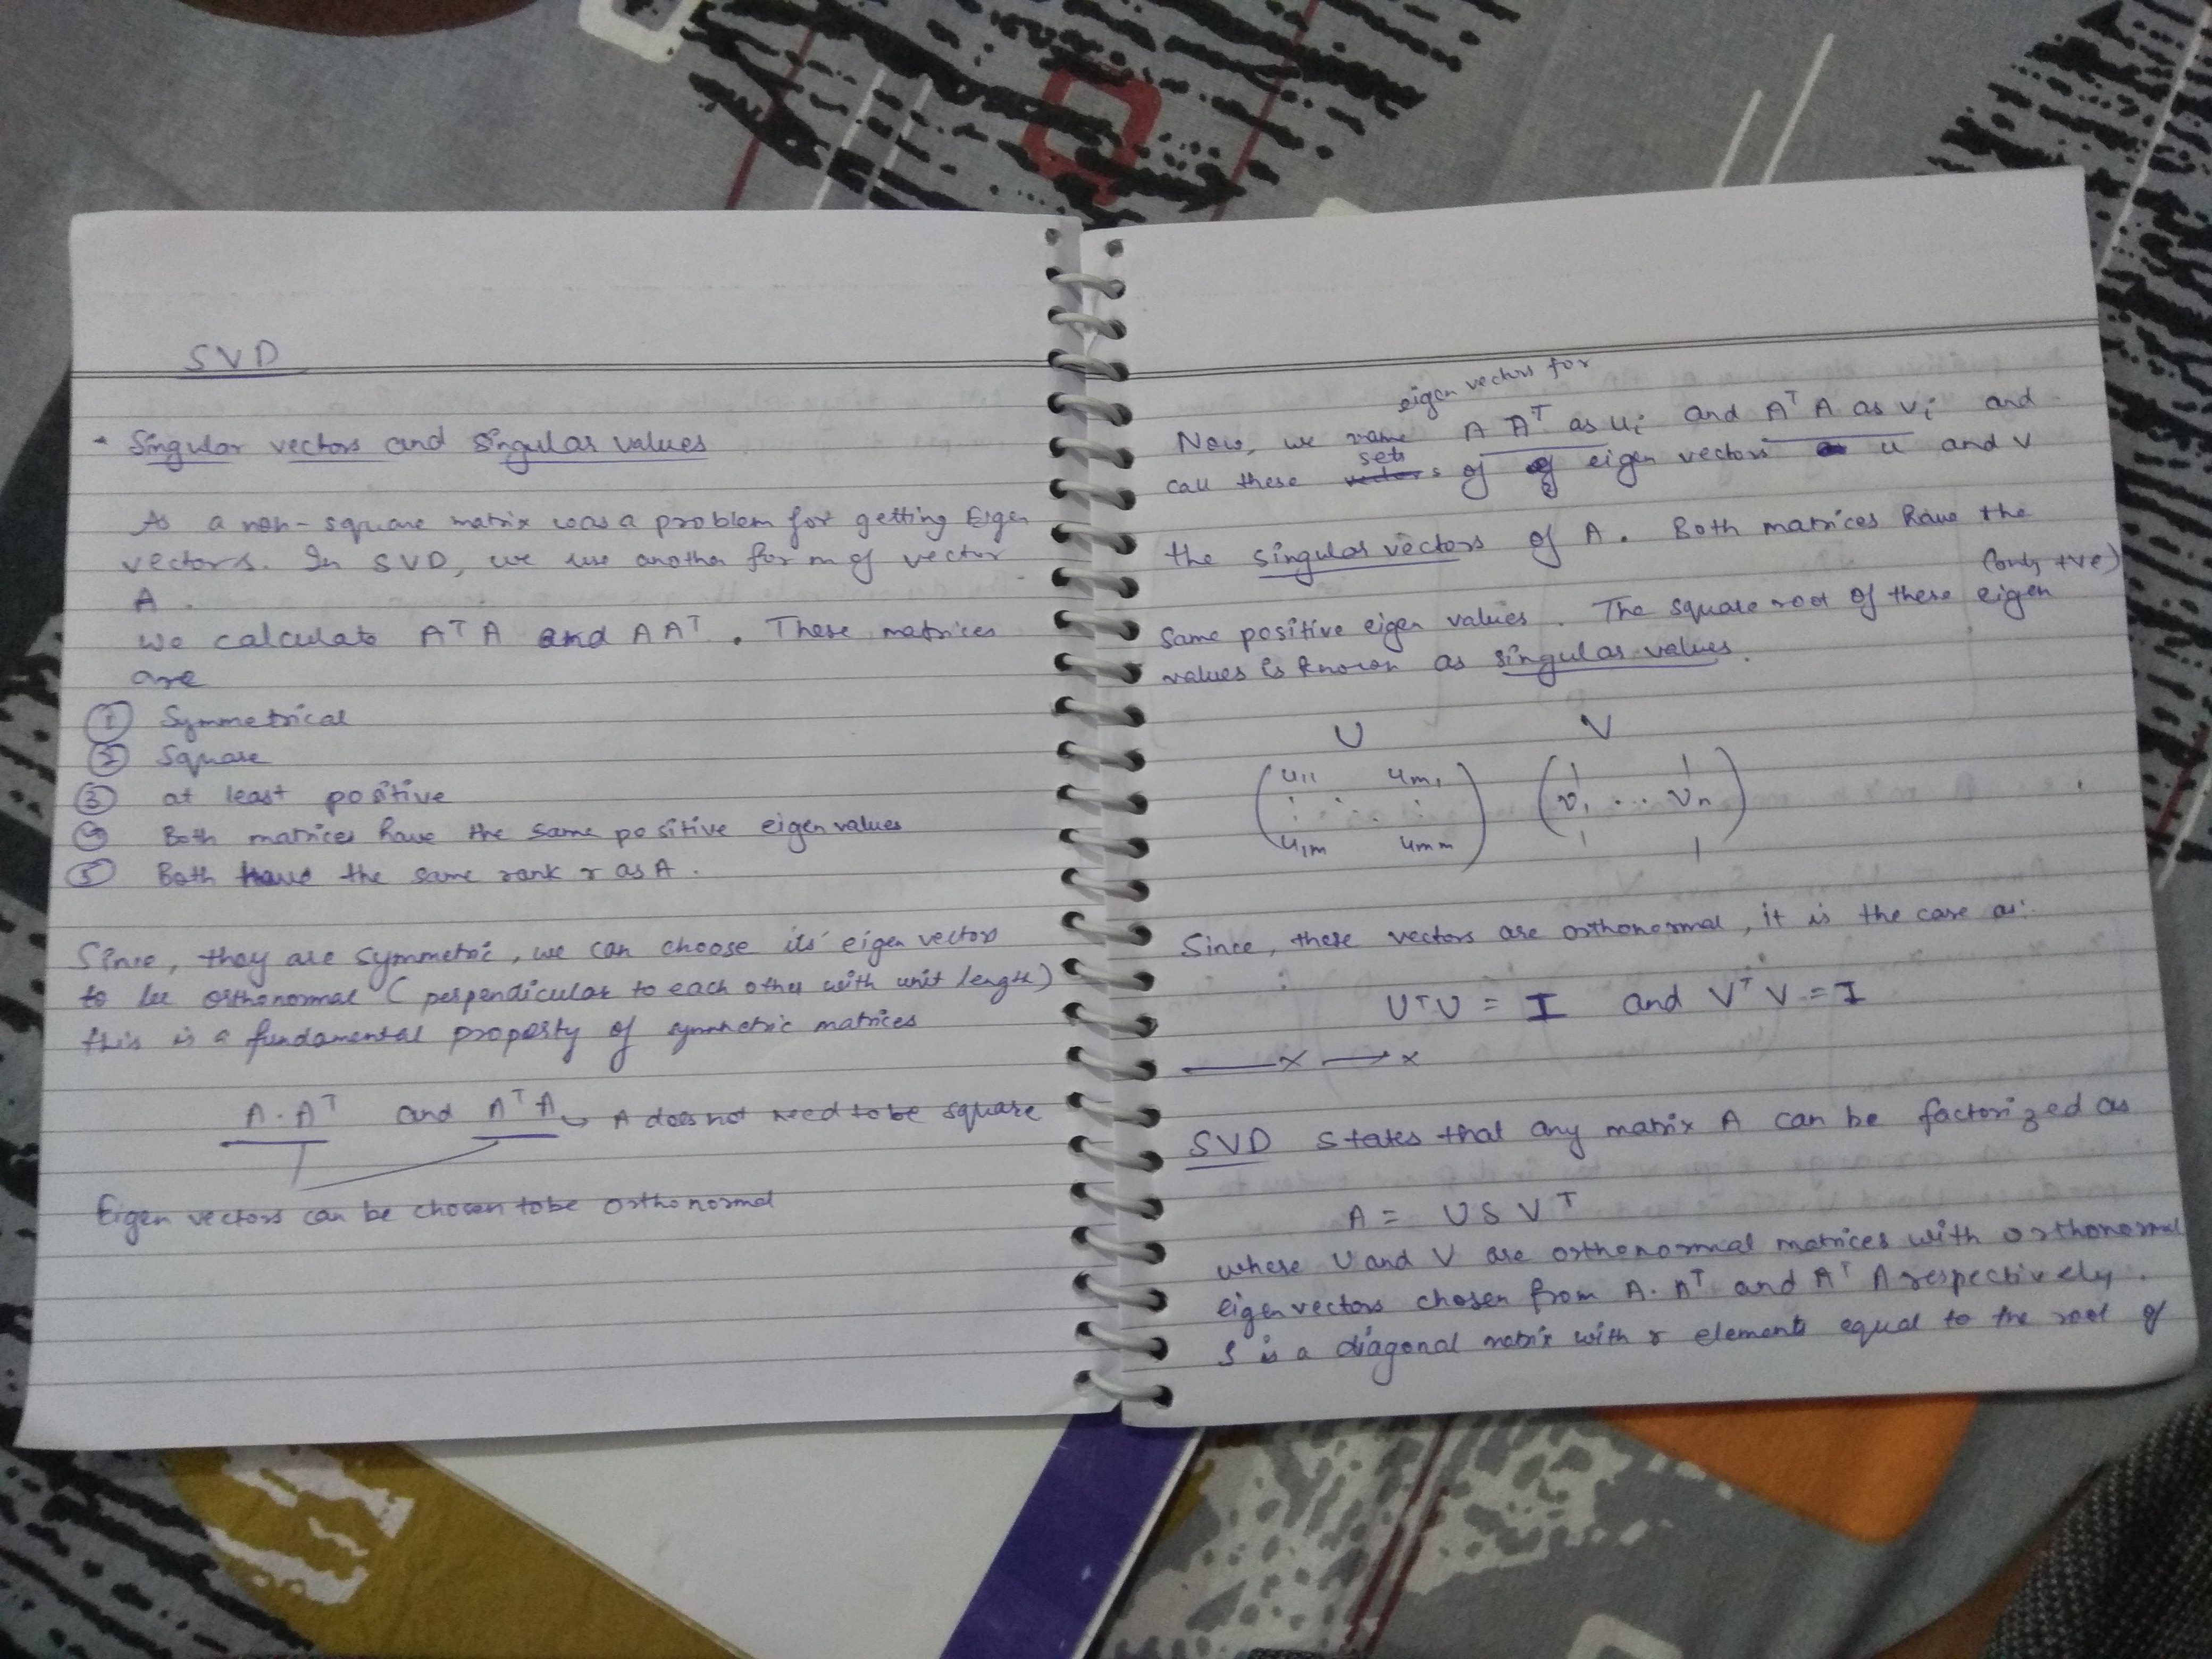 SVD
Singular vectors and singular values
As a non-square matrix was a problem for getting Eigen
vectors. In SVD, we use another form of vector
A.
we calculate AᵀA and AAᵀ. These matrices
are
① Symmetrical
② Square
③ at least positive
④ Both matrices have the same positive eigen values
⑤ Both have the same rank r as A.
Since, they are symmetric, we can choose its' eigen vectors
to be orthonormal (perpendicular to each other with unit length)
this is a fundamental property of symmetric matrices
A.Aᵀ and AᵀA → A does not need to be square
Eigen vectors can be chosen to be orthonormal
eigen vectors for
Now, we name A Aᵀ as uᵢ and Aᵀ A as vᵢ and
sets
call these vectors of eigen vectors u and v
the singular vectors of A. Both matrices have the
(only +ve)
same positive eigen values. The square root of these eigen
values is known as singular values.
U V
u₁₁ uₘ₁
v₁ ... vₙ
u₁ₘ uₘₘ
Since, these vectors are orthonormal, it is the case as:
UᵀU = I and VᵀV = I
——x ——x
SVD states that any matrix A can be factorized as
A = U S Vᵀ
where U and V are orthonormal matrices with orthonormal
eigen vectors chosen from A.Aᵀ and AᵀA respectively.
S is a diagonal matrix with r elements equal to the root of